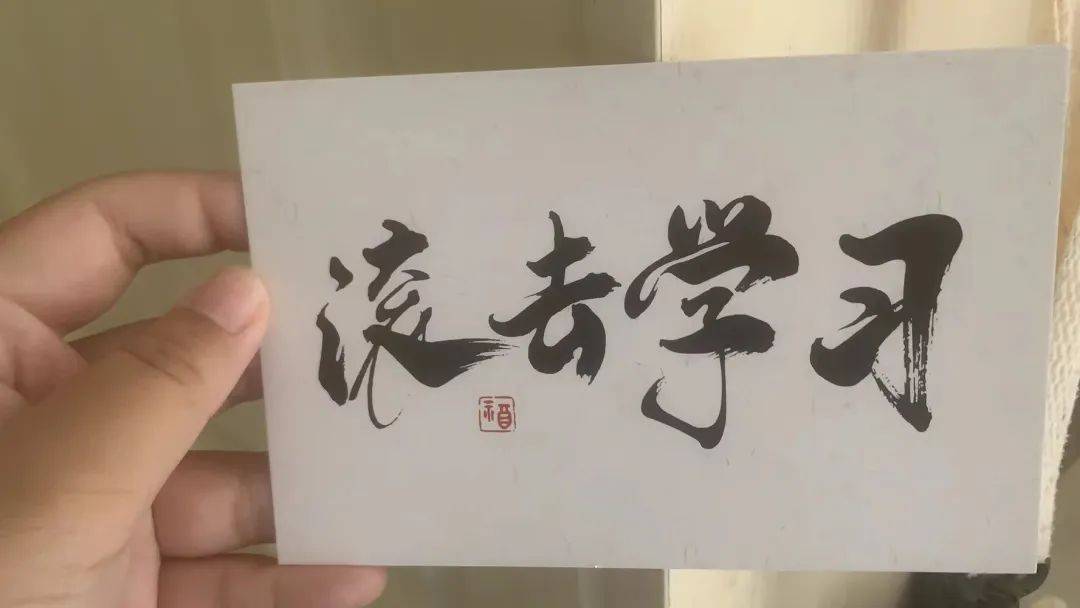 滚去学习